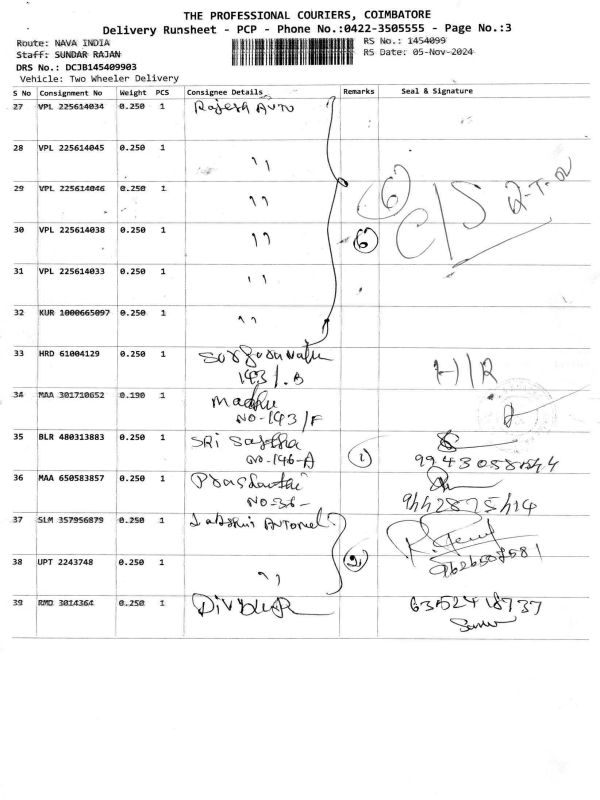 THE PROFESSIONAL COURIERS, COIMBATORE
Delivery Runsheet - PCP - Phone No.:0422-3505555 - Page No.:3
Route: NAVA INDIA
RS No.: 1454099
Staff: SUNDAR RAJAN
RS Date: 05-Nov-2024
DRS No.: DCJB145409903
Vehicle: Two Wheeler Delivery
S No Consignment No Weight PCS Consignee Details Remarks Seal & Signature
27 VPL 225614034 0.250 1 Rajesh AUTO
28 VPL 225614045 0.250 1 ''
29 VPL 225614046 0.250 1 '' 6 C/S
30 VPL 225614038 0.250 1 '' 6
31 VPL 225614033 0.250 1 ''
32 KUR 1000665097 0.250 1 ''
33 HRD 61004129 0.250 1
143/.B H/R
34 MAA 301710652 0.190 1 Madhu
NO-143/F
35 BLR 480313883 0.250 1 SRi Sastha
NO-146-A 1
36 MAA 650583857 0.250 1 Prashanthi
NO-36-
37 SLM 357956879 0.250 1
38 UPT 2243748 0.250 1 '' 2
39 RMD 3014364 0.250 1